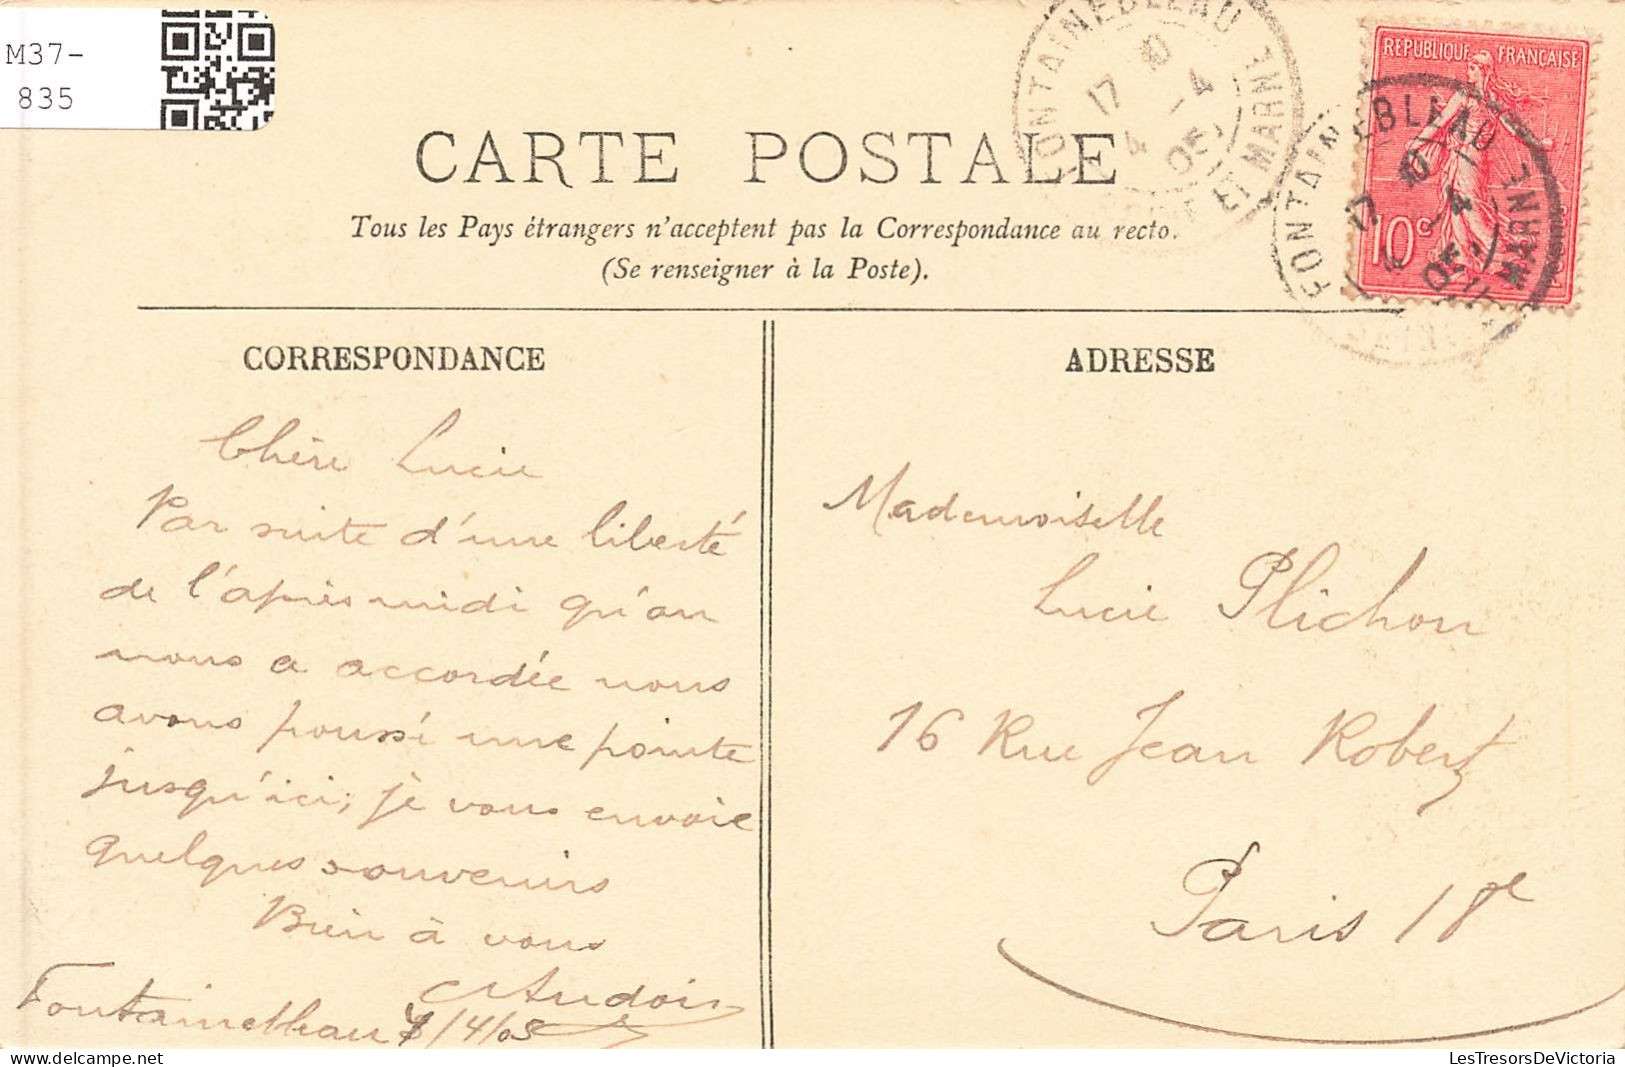 M37-
835
CARTE POSTALE
Tous les Pays étrangers n'acceptent pas la Correspondance au recto.
(Se renseigner à la Poste).
REPUBLIQUE FRANÇAISE
10c
FONTAINEBLEAU
ET MARNE
17
10 - 4
05
FONTAINEBLEAU
MARNE
17
10 - 4
05
CORRESPONDANCE
Chère Lucie
Par suite d'une liberté
de l'après midi qu'on
nous a accordée nous
avons poussé une pointe
jusqu'ici; je vous envoie
quelques souvenirs
Bien à vous
Audoin
Fontainebleau /4/05
ADRESSE
Mademoiselle
Lucie Plichon
16 Rue Jean Robert
Paris 18e
LesTresorsDeVictoria